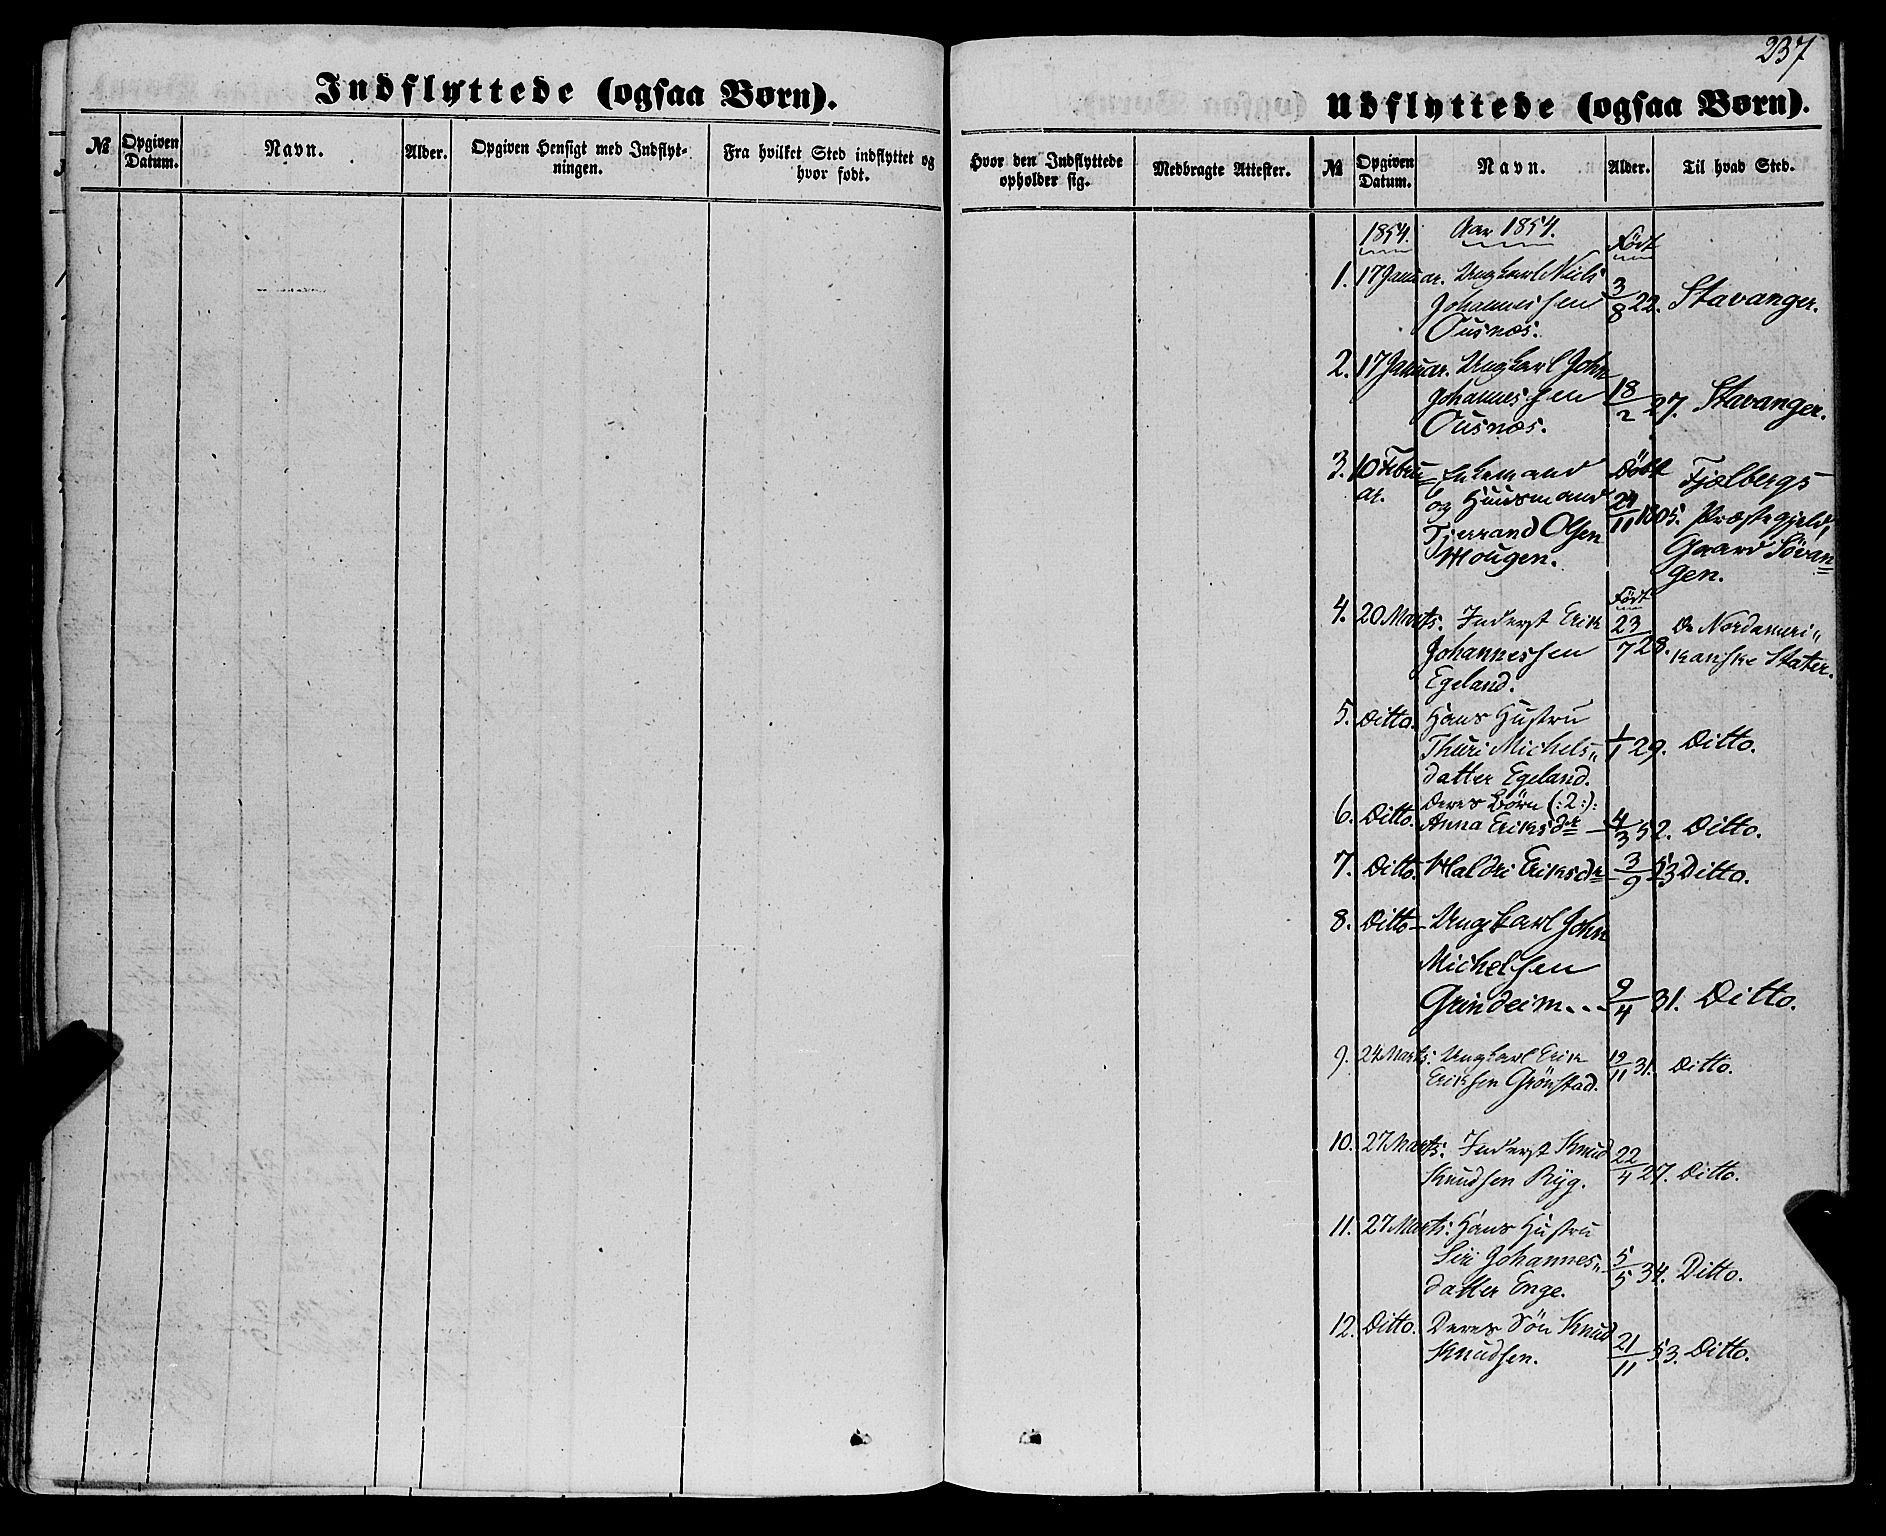 237
Indflyttede (ogsaa Børn).
Udflyttede (ogsaa Børn).
№ Opgiven Datum. Navn. Alder. Opgiven Hensigt med Indflytningen. Fra hvilket Sted indflyttet og hvor født. Hvor den Indflyttede opholder sig. Medbragte Attester. № Opgiven Datum. Navn. Alder. Til hvad Sted.
1854. Aar 1854. Født
1. 17 Januar. Ungkarl Niels 3/8 22. Stavanger.
Johannessen
Ousnæs.
2. 17 Januar. Ungkarl John 18/2 27. Stavanger.
Johannessen
Ousnæs.
3. 10 Febru= Enkemand Døbt Fjælbergs
ar. og Huusmand 24/11 1805. Præstegjeld,
Tjerrand Olsen Gaard Søvan=
Hougen. gen.
Født
4. 20 Marts. Inderst Erik 23/7 28. De Nordameri"
Johannessen kanske Stater.
Egeland.
5. Ditto. Hans Hustru
Thuri Michels" 1/1 29. Ditto.
datter Egeland.
Deres Børn (:2:):
6. Ditto. Anna Eriksdr 4/3 52. Ditto.
7. Ditto. Haldri Eriksdr 3/9 53 Ditto.
8. Ditto Ungkarl John
Michelsen
Grindeim... 9/4 31. Ditto.
9. 24 Marts. Ungkarl Erik 19/11 31. Ditto.
Eriksen Grønstad.
10. 27 Marts. Inderst Knud 22/4 27. Ditto.
Knudsen Ryg.
11. 27 Marts. Hans Hustru
Siri Johannes" 5/5 34. Ditto.
datter Enge.
12. Ditto. Deres Søn Knud 21/11 53. Ditto.
Knudsen.